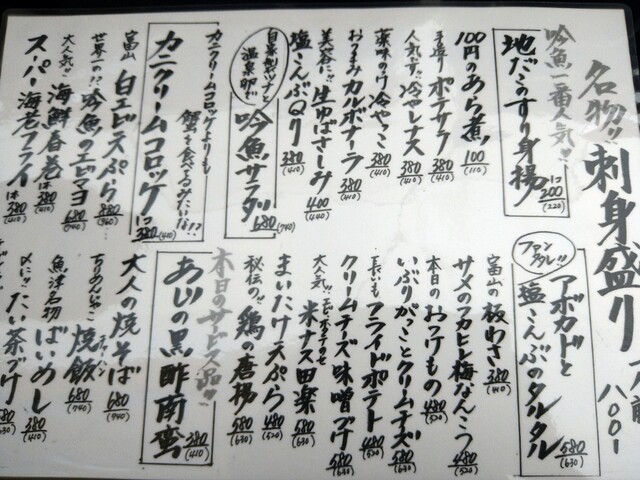 名物!! 刺身盛り 八〇〇!
吟魚一番人気!!
地だこのすり身揚 1コ 200 (220)
100円のあら煮 100 (110)
手造り ポテサラ 380 (410)
人気です!! 冷やしナス 380 (410)
薬味のっけ 冷やっこ 380 (410)
おつまみ カルボナーラ 380 (410)
美容に!! 生ゆばさしみ 400 (440)
塩こんぶQり 380 (410)
自家製ツナと温泉卵で
吟魚サラダ 680 (740)
カニクリームコロッケよりも
蟹を食べるみたいな!?
カニクリームコロッケ 1コ 380 (410)
富山 白エビ天ぷら 880 (960)
世界一の!? 吟魚のエビマヨ 680 (740)
大人気!! 海鮮春巻 1本 380 (410)
スーパー海老フライ 1本 380 (410)
ファン多し!!
アボカドと
塩こんぶのタルタル 580 (630)
富山の 板わさ 380 (410)
サメのフカヒレ梅なんこつ 480 (520)
本日の おつけもの 480 (520)
いぶりがっことクリームチーズ 580 (630)
長いも フライドポテト 480 (520)
クリームチーズ味噌づけ 580 (630)
大人気!! 米ナス田楽 580 (630)
まいたけ天ぷら 480 (520)
秘伝の!! 鶏の唐揚 580 (630)
本日のサービス品!!
あじの黒酢南蛮 380 (410)
大人の焼そば 680 (740)
ちりめんじゃこ 焼飯 680 (740)
魚津名物 ばいめし 380 (410)
〆に!! たい茶づけ 580 (630)